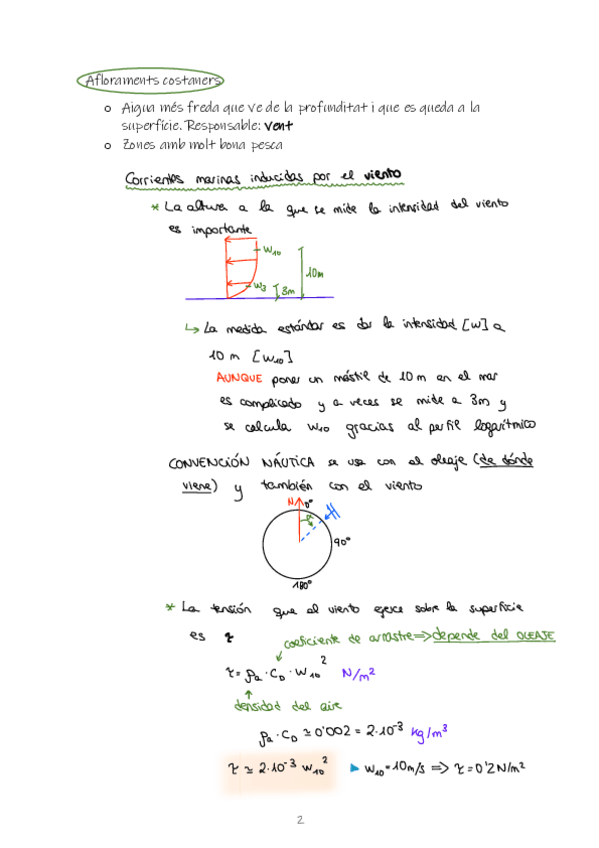 Afloraments costaners
o Aigua més freda que ve de la profunditat i que es queda a la
superfície. Responsable: vent
o Zones amb molt bona pesca
Corrientes marinas inducidas por el viento
* La altura a la que se mide la intensidad del viento
es importante
W10
10m
W3
3m
↳ La medida estándar es dar la intensidad [W] a
10 m [W10]
AUNQUE poner un mástil de 10m en el mar
es complicado y a veces se mide a 3m y
se calcula W10 gracias al perfil logarítmico
CONVENCIÓN NÁUTICA se usa con el oleaje (de dónde
viene) y también con el viento
N 0°
α
90°
180°
* La tensión que el viento ejerce sobre la superficie
es τ
coeficiente de arrastre => depende del OLEAJE
τ = ρa · CD · W10² N/m²
densidad del aire
ρa · CD ≃ 0'002 = 2·10⁻³ kg/m³
τ ≃ 2·10⁻³ W10² ▶ W10 = 10m/s => τ = 0'2 N/m²
2